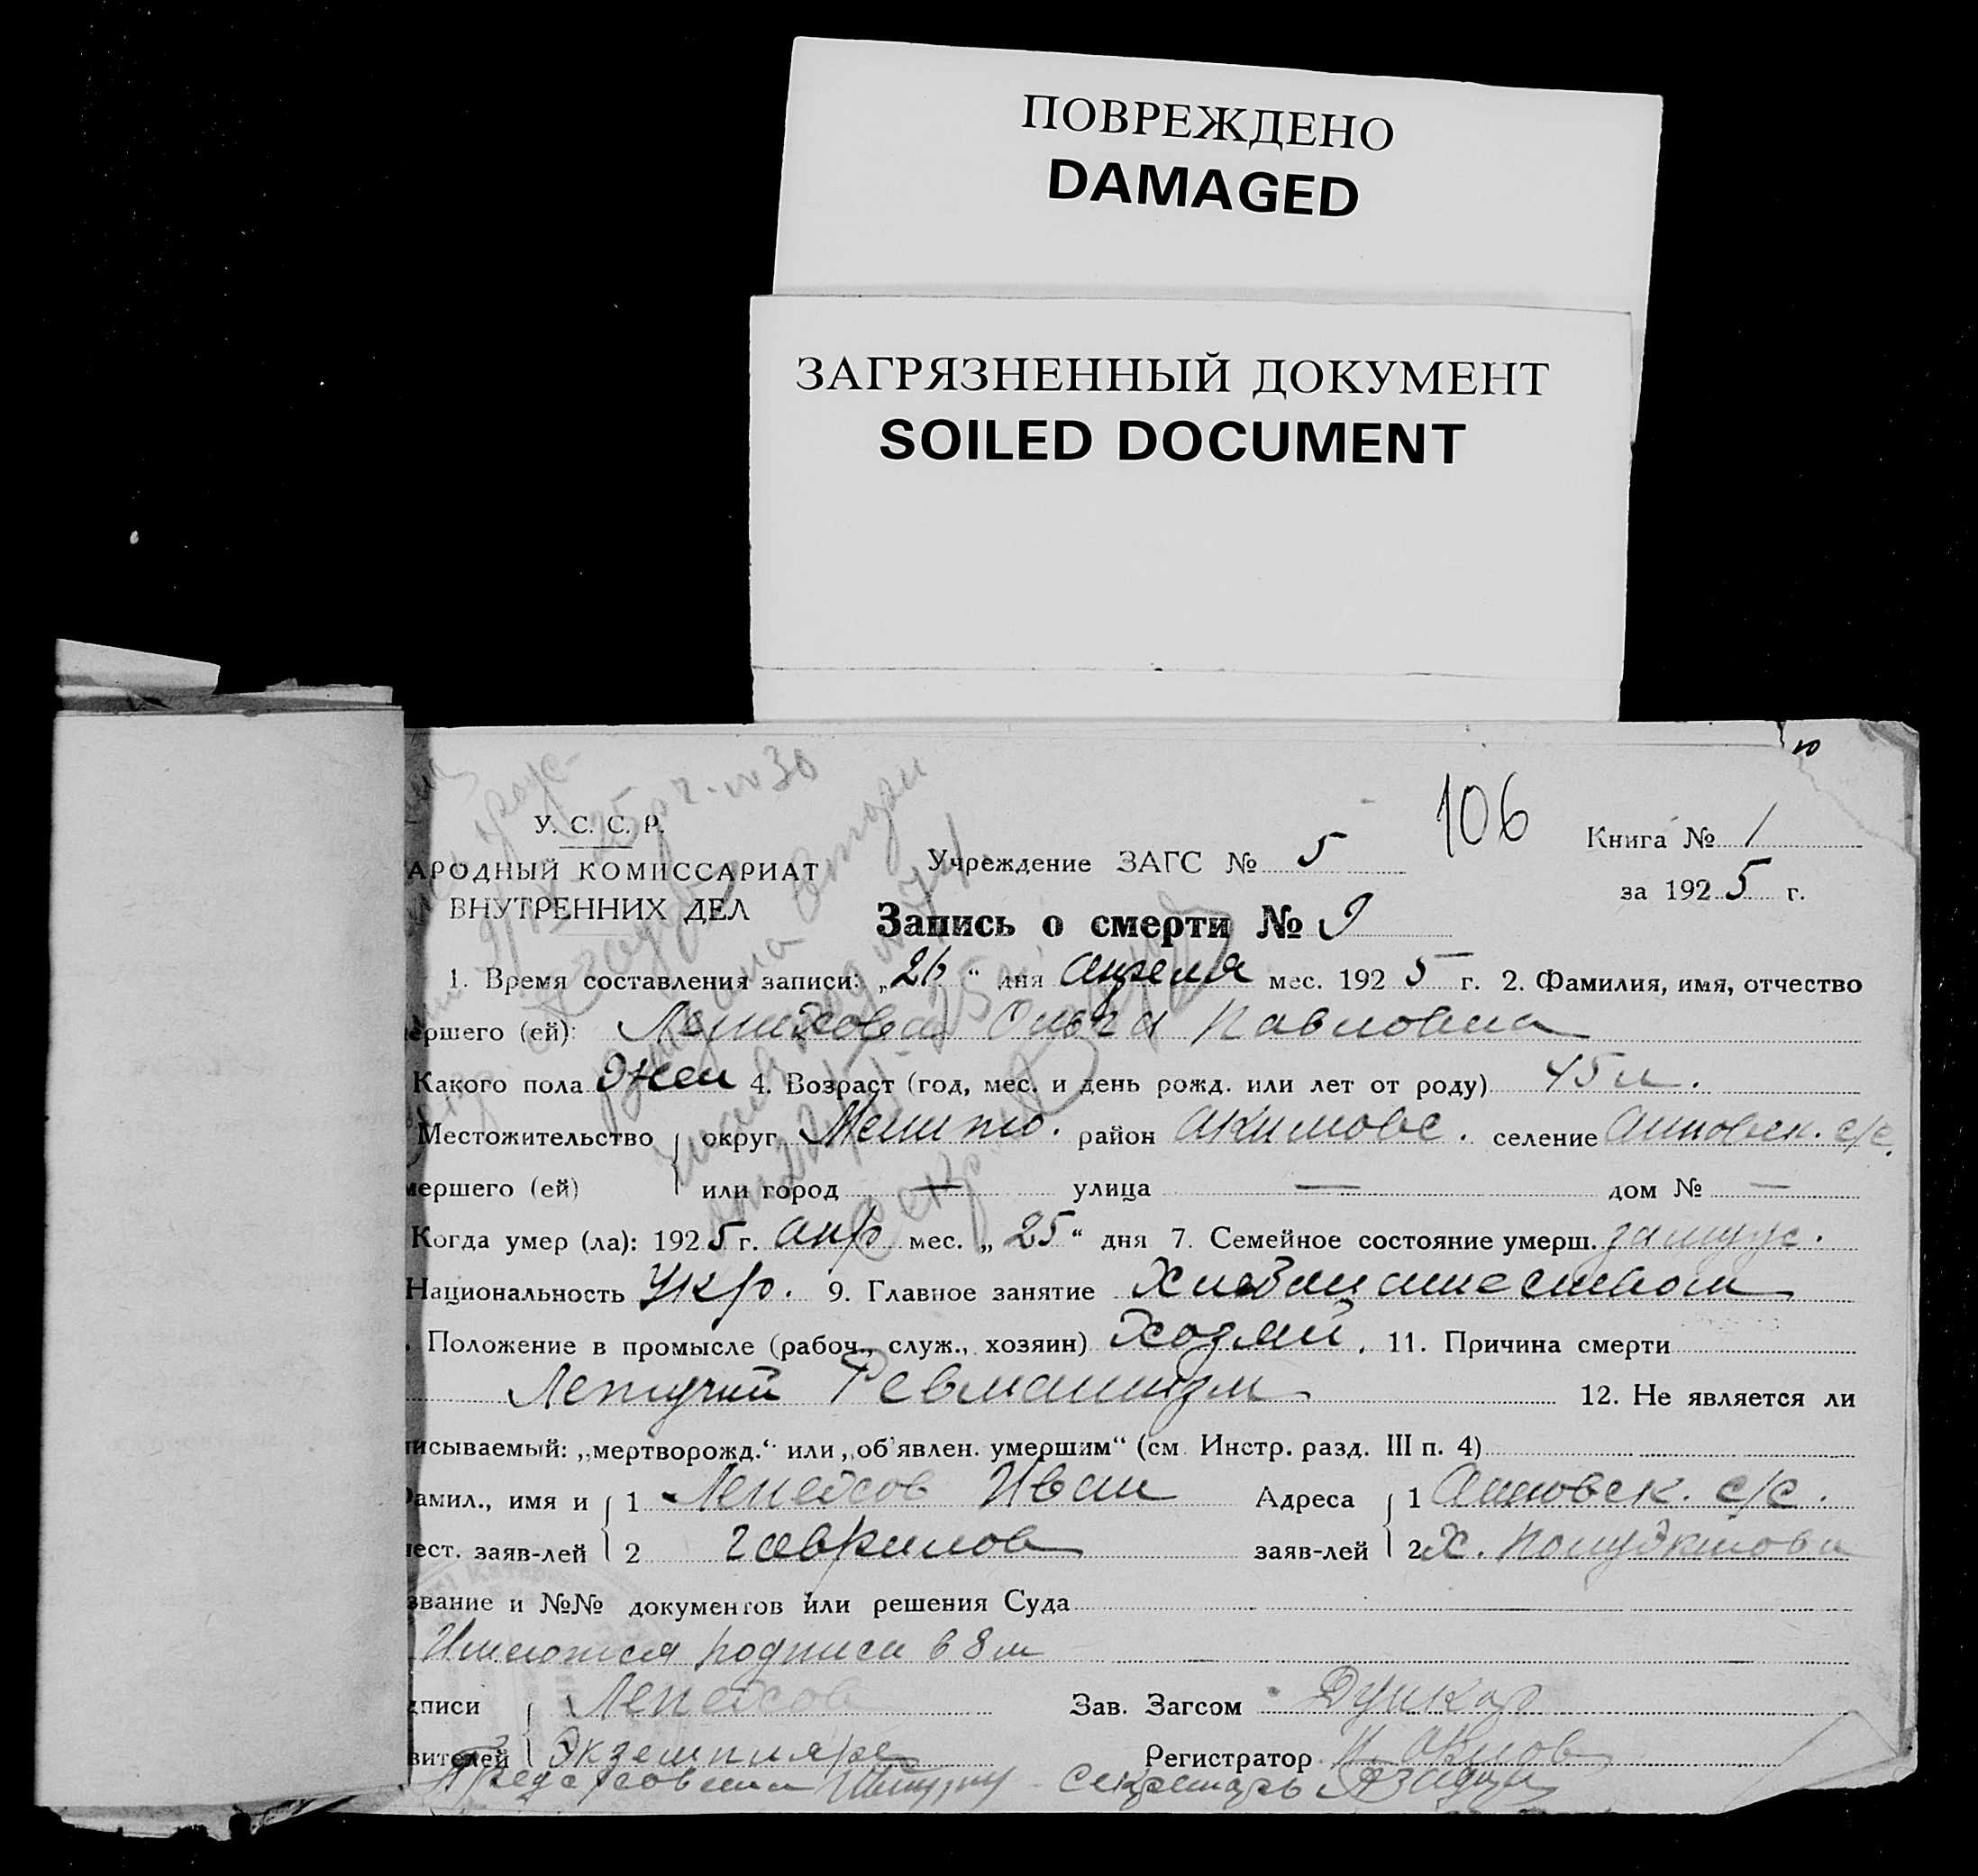 ПОВРЕЖДЕНО
DAMAGED
ЗАГРЯЗНЕННЫЙ ДОКУМЕНТ
SOILED DOCUMENT
106
У. С. С. Р.
АРОДНЫЙ КОМИССАРИАТ
ВНУТРЕННИХ ДЕЛ
Учреждение ЗАГС № 5
Книга № 1
за 1925 г.
Запись о смерти № 9
1. Время составления записи: „26“ дня Апреля мес. 1925 г. 2. Фамилия, имя, отчество
ершего (ей): Ольга Павловна
Какого пола Жен 4. Возраст (год, мес. и день рожд. или лет от роду) 45 л.
Местожительство округ Мелито. район Акимовс. селение Анновск. с/с.
мершего (ей) или город — улица — дом № —
Когда умер (ла): 1925 г. апр мес. „25“ дня 7. Семейное состояние умерш. замуж.
Национальность Укр. 9. Главное занятие
. Положение в промысле (рабоч., служ., хозяин) Хозяй. 11. Причина смерти
Летучий Ревматизм 12. Не является ли
исываемый: „мертворожд.“ или „об'явлен. умершим“ (см Инстр. разд. III п. 4)
амил., имя и 1 Лепехов Иван Адреса 1 Анновск. с/с.
ест. заяв-лей 2 Гаврилов заяв-лей 2 х.
звание и №№ документов или решения Суда
Имеются подписи в 8 м
дписи Лепехов Зав. Загсом
вителей Экземпляре Регистратор
Секретарь